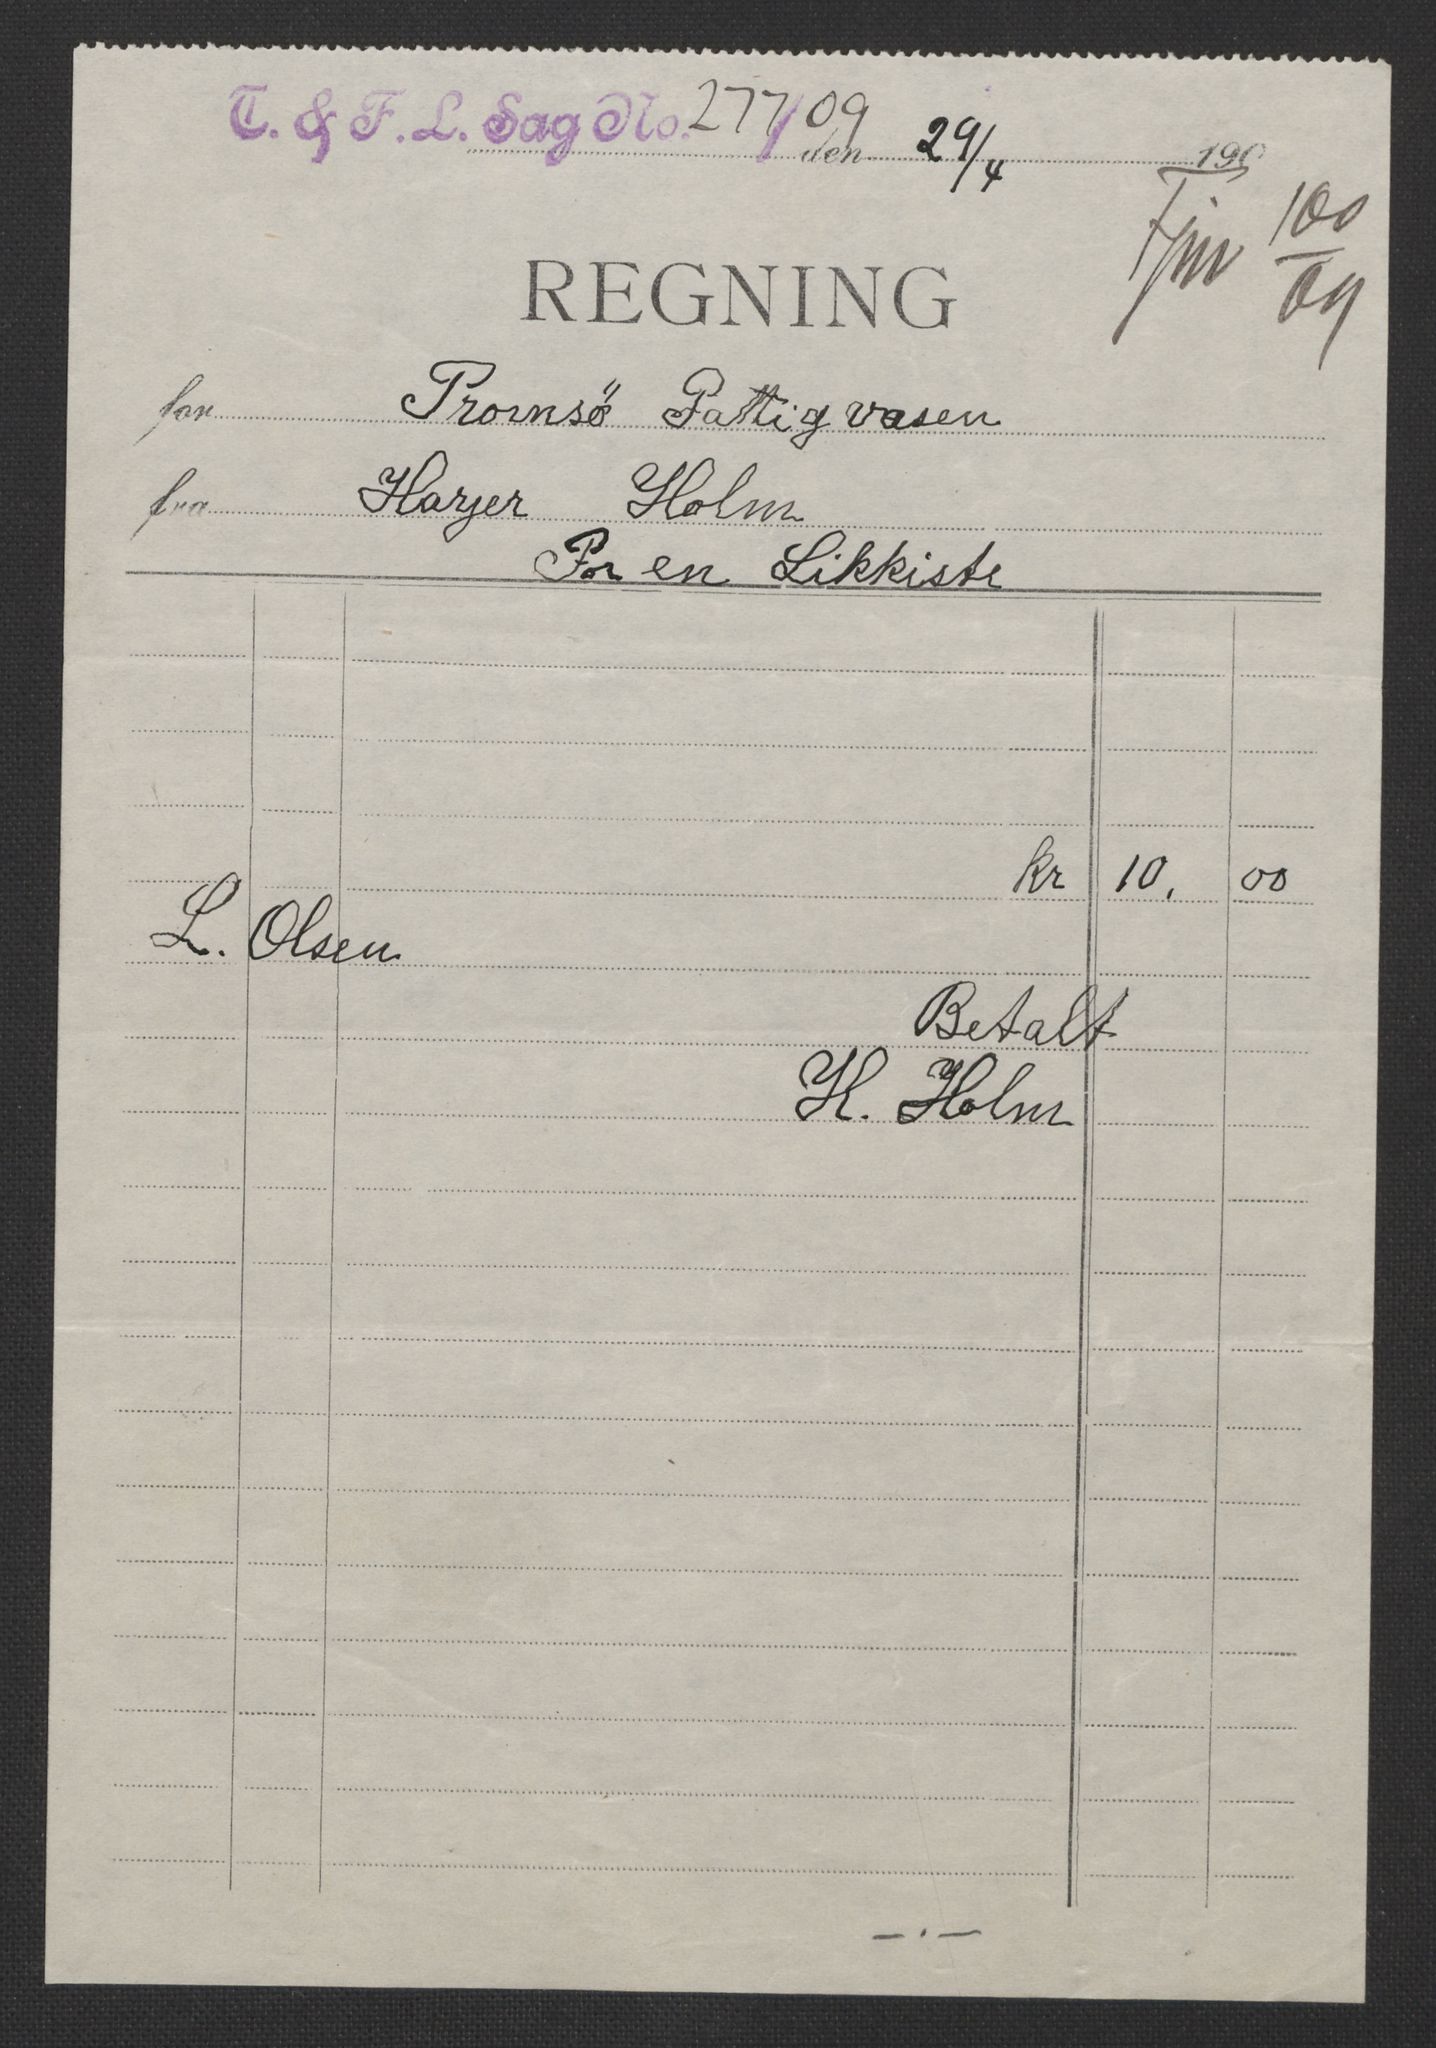 T. & F. L. Sag No. 277/09
den 29/4 190
Fjm 100/09
REGNING
for Tromsö Fattigvæsen
fra Harjer Holm
For en Likkiste
kr 10. 00
L. Olsen
Betalt
H. Holm